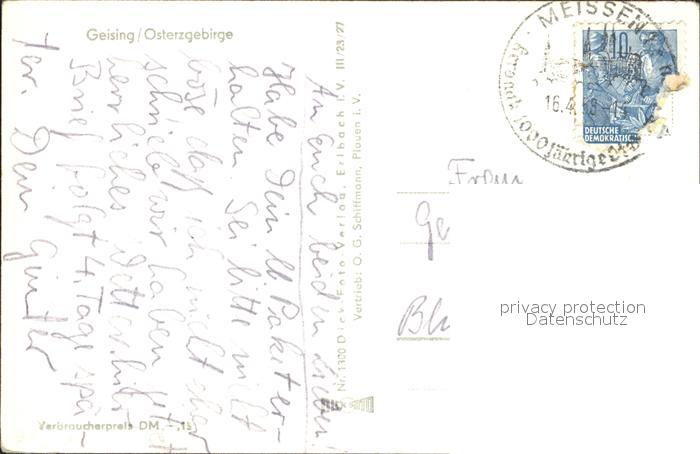 Geising/Osterzgebirge
An Euch beiden Lieben!
Habe Dein Paket er-
halten. Sei bitte nicht
böse daß ich nicht eher
schrieb wir haben jetzt
herrliches Wetter hier
Brief folgt 4. Tage spä-
ter. Dein Günter
Verbraucherpreis DM -,15
Nr. 1300 Dick Foto-Verlag, Erlbach i. V. III/23/27
Vertrieb: O. G. Schiffmann, Plauen i. V.
MEISSEN
16.4.
1000jährige
10
DEUTSCHE
DEMOKRATISCHE
Frau
Ge
Bl
privacy protection
Datenschutz